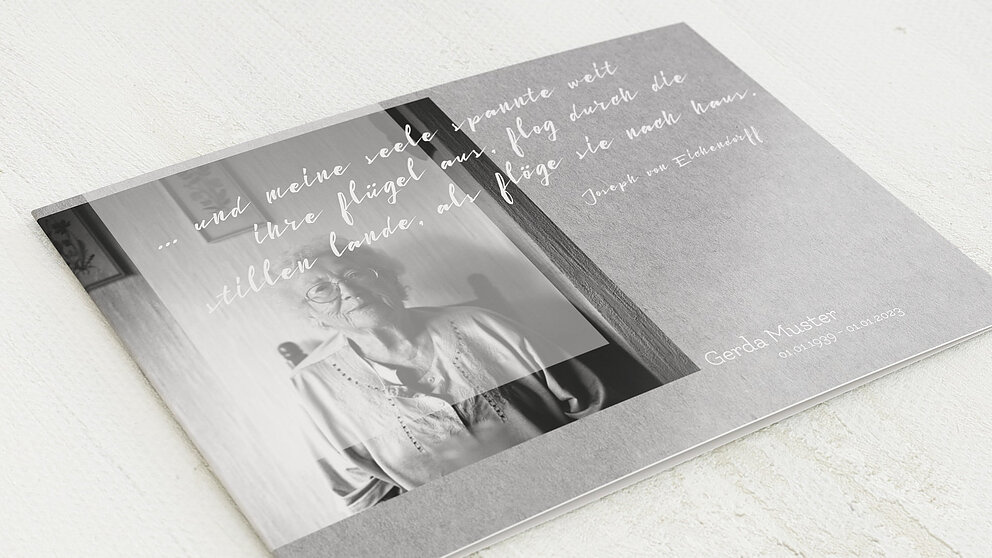 ... und meine seele spannte weit
ihre flügel aus, flog durch die
stillen lande, als flöge sie nach haus.
Joseph von Eichendorff
Gerda Muster
01.01.1939 - 01.01.2023